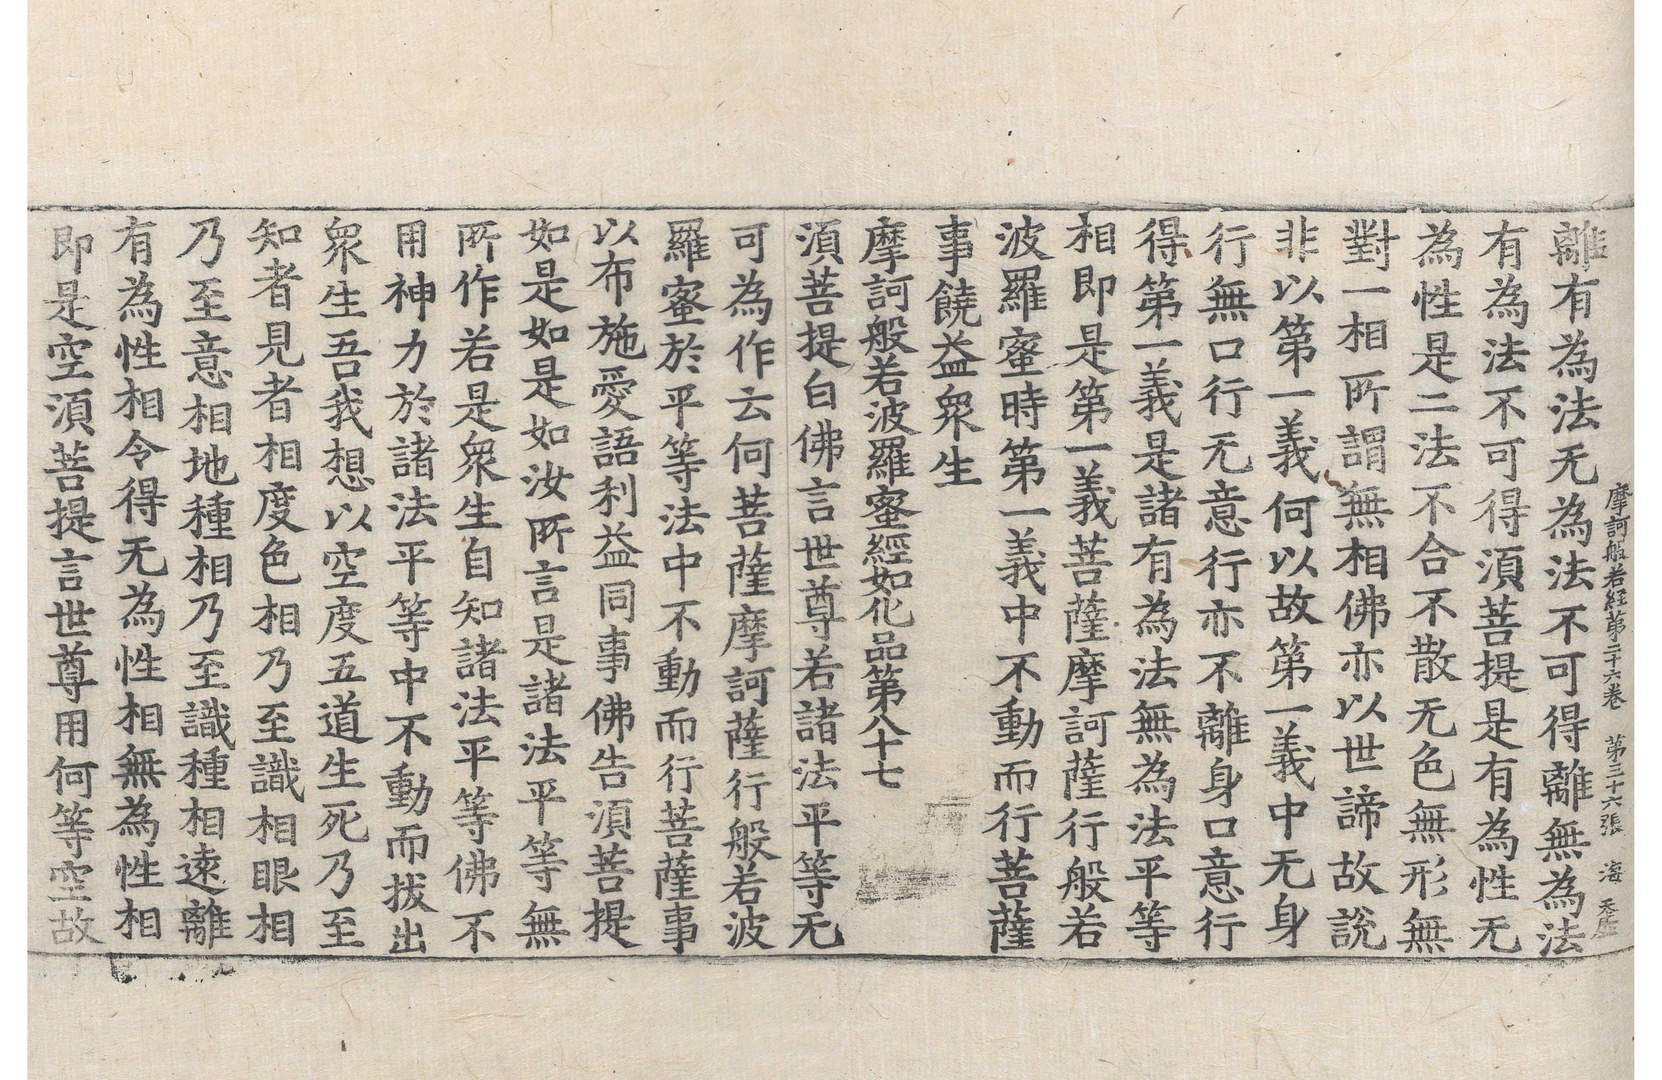 摩訶般若経第二十六卷 第三十六張 海
離有為法无為法不可得離無為法
有為法不可得須菩提是有為性无
為性是二法不合不散无色無形無
對一相所謂無相佛亦以世諦故說
非以第一義何以故第一義中无身
行無口行无意行亦不離身口意行
得第一義是諸有為法無為法平等
相即是第一義菩薩摩訶薩行般若
波羅蜜時第一義中不動而行菩薩
事饒益衆生
摩訶般若波羅蜜經如化品第八十七
須菩提白佛言世尊若諸法平等无
可為作云何菩薩摩訶薩行般若波
羅蜜於平等法中不動而行菩薩事
以布施愛語利益同事佛告須菩提
如是如是如汝所言是諸法平等無
所作若是衆生自知諸法平等佛不
用神力於諸法平等中不動而拔出
衆生吾我想以空度五道生死乃至
知者見者相度色相乃至識相眼相
乃至意相地種相乃至識種相遠離
有為性相令得无為性相無為性相
即是空須菩提言世尊用何等空故